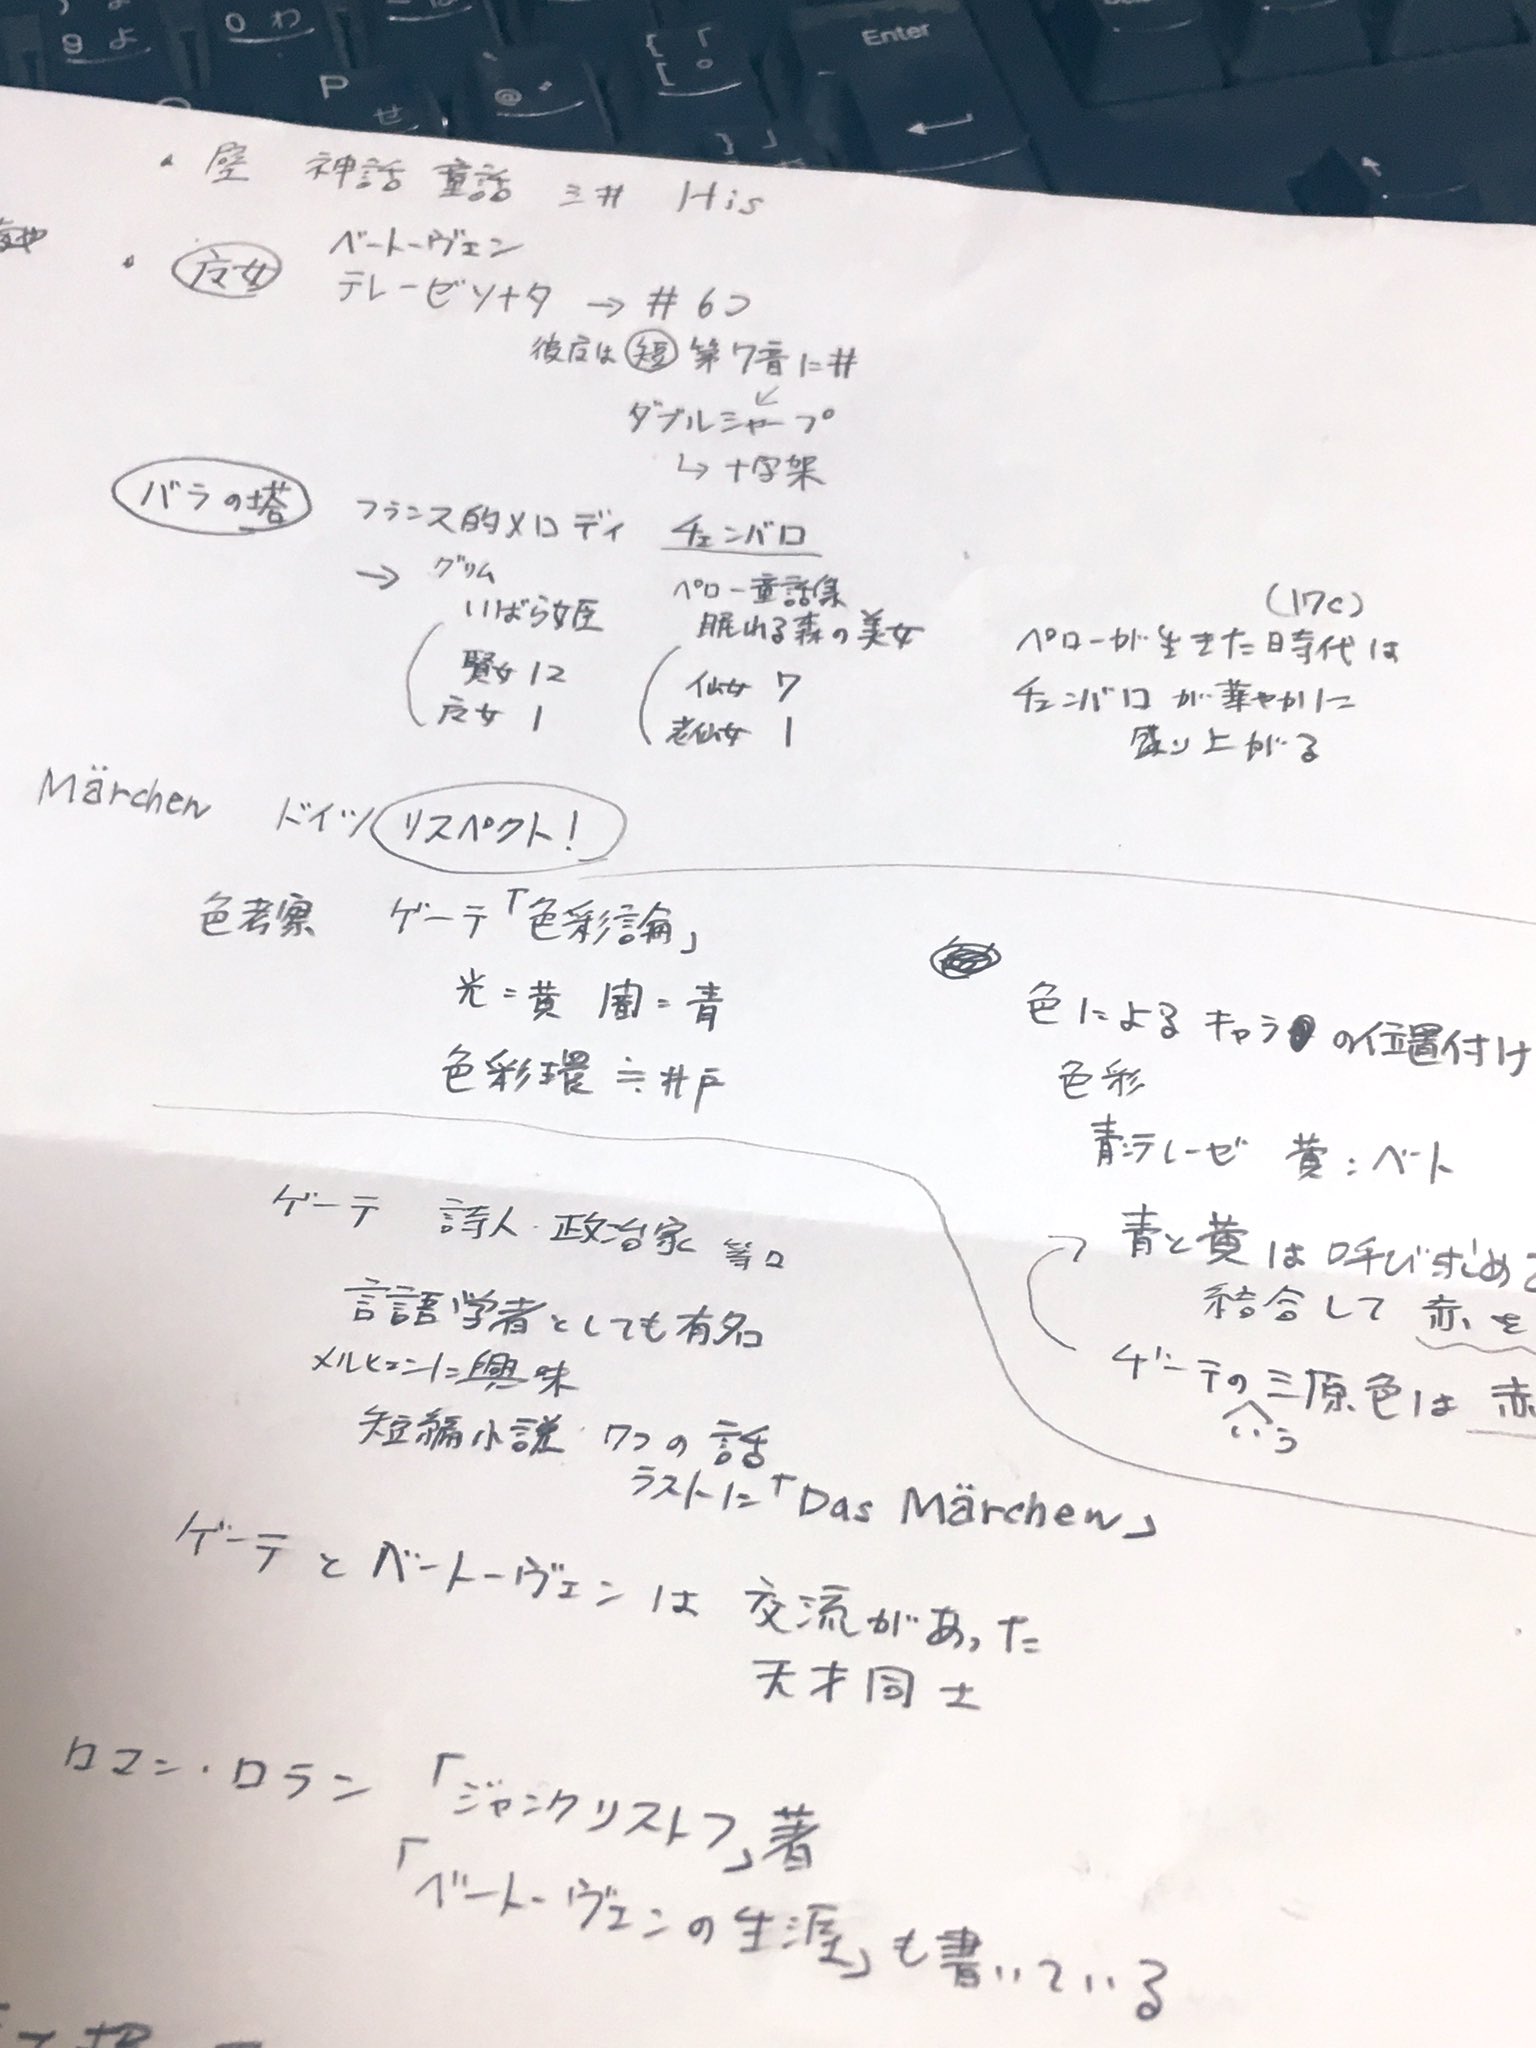 9 よ
0 わ
P せ
@ ゛
{ 「
[ °
} 」
Enter
・ 神話 童話 ミ # His
・ ベートーヴェン
テレーゼソナタ → # 6つ
彼女は 短 第7音に#
ダブルシャープ
↳ 十字架
バラの塔 フランス的メロディ チェンバロ
→ グリム ペロー童話集
いばら姫 眠れる森の美女
(17C)
ペローが生きた時代は
賢女 12 仙女 7
チェンバロが華やかに
女 1 老仙女 1
盛り上がる
Märchen ドイツ リスペクト!
色考察 ゲーテ「色彩論」
光=黄 闇=青
色彩環≒井戸
色によるキャラの位置付け
色彩
青:テレーゼ 黄:ベート
青と黄は呼び求め
結合して 赤を
ゲーテの三原色は 赤
いう
ゲーテ 詩人・政治家 等々
言語学者としても有名
メルヒェンに興味
短編小説 7つの話
ラストに「Das Märchen」
ゲーテとベートーヴェンは 交流があった
天才同士
ロマン・ロラン 「ジャンクリストフ」著
「ベートーヴェンの生涯」も書いている